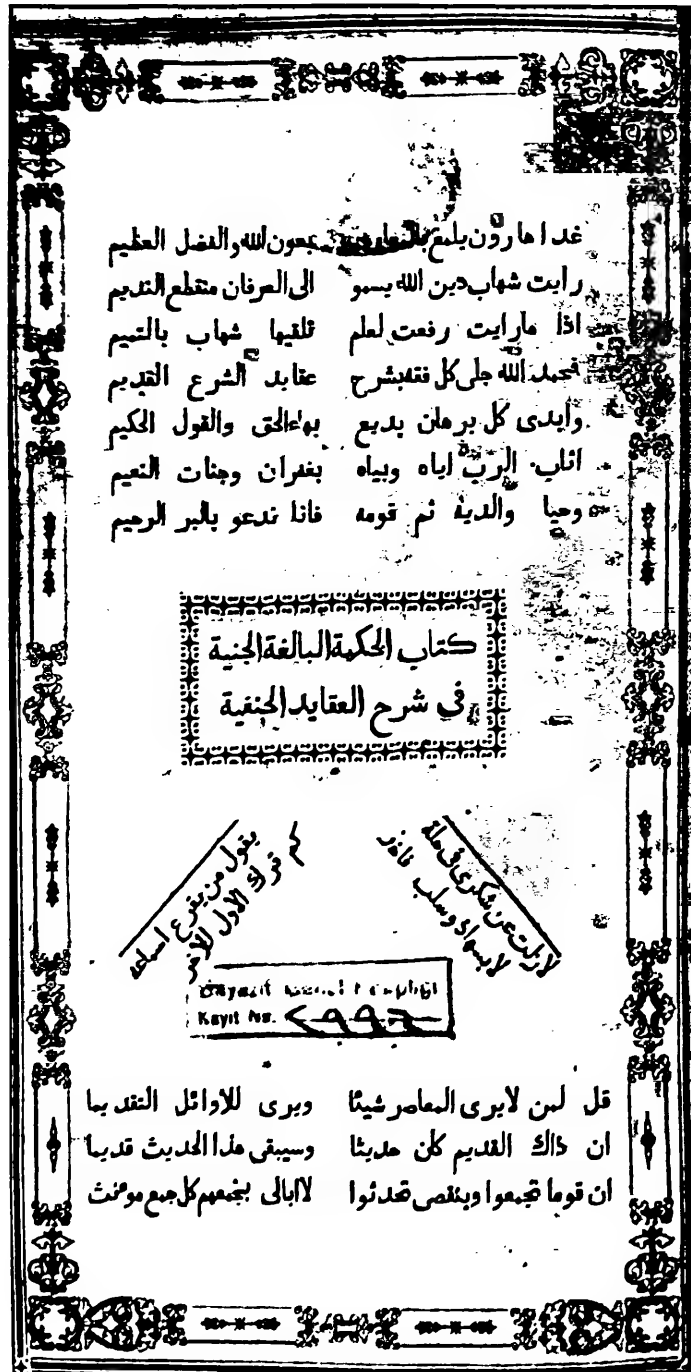 غدا هارون يلمع بعون الله والفضل العظيم
رايت شهاب دين الله يسمو الى العرفان منقطع النديم
اذا مارايت رفعت لعلم تلقيها شهاب بالتميم
فحمد الله جلى كل فقه بشرح عقايد الشرع القديم
وابدى كل برهان بديع بهاء الحق والقول الحكيم
اثاب الرب اياه وبياه بغفران وجنات النعيم
وحيا والدية ثم قومه فانا ندعو بالبر الرحيم
كتاب الحكمة البالغة الجنية
في شرح العقايد الحنفية
يقول من يقرع اسماعه
كم ترك الأول للآخر
لازلت عن شكرى فى حلة
لابسها ذو سلب فاخر
Bayazıt
Kayıt No. ٢٩٩٦
قل لمن لايرى المعاصر شيئا ويرى للاوائل التقديما
ان ذاك القديم كان حديثا وسيبقى هذا الحديث قديما
ان قوما تجمعوا وبنقصى تحدثوا لاابالى بجمعهم كل جمع مونث